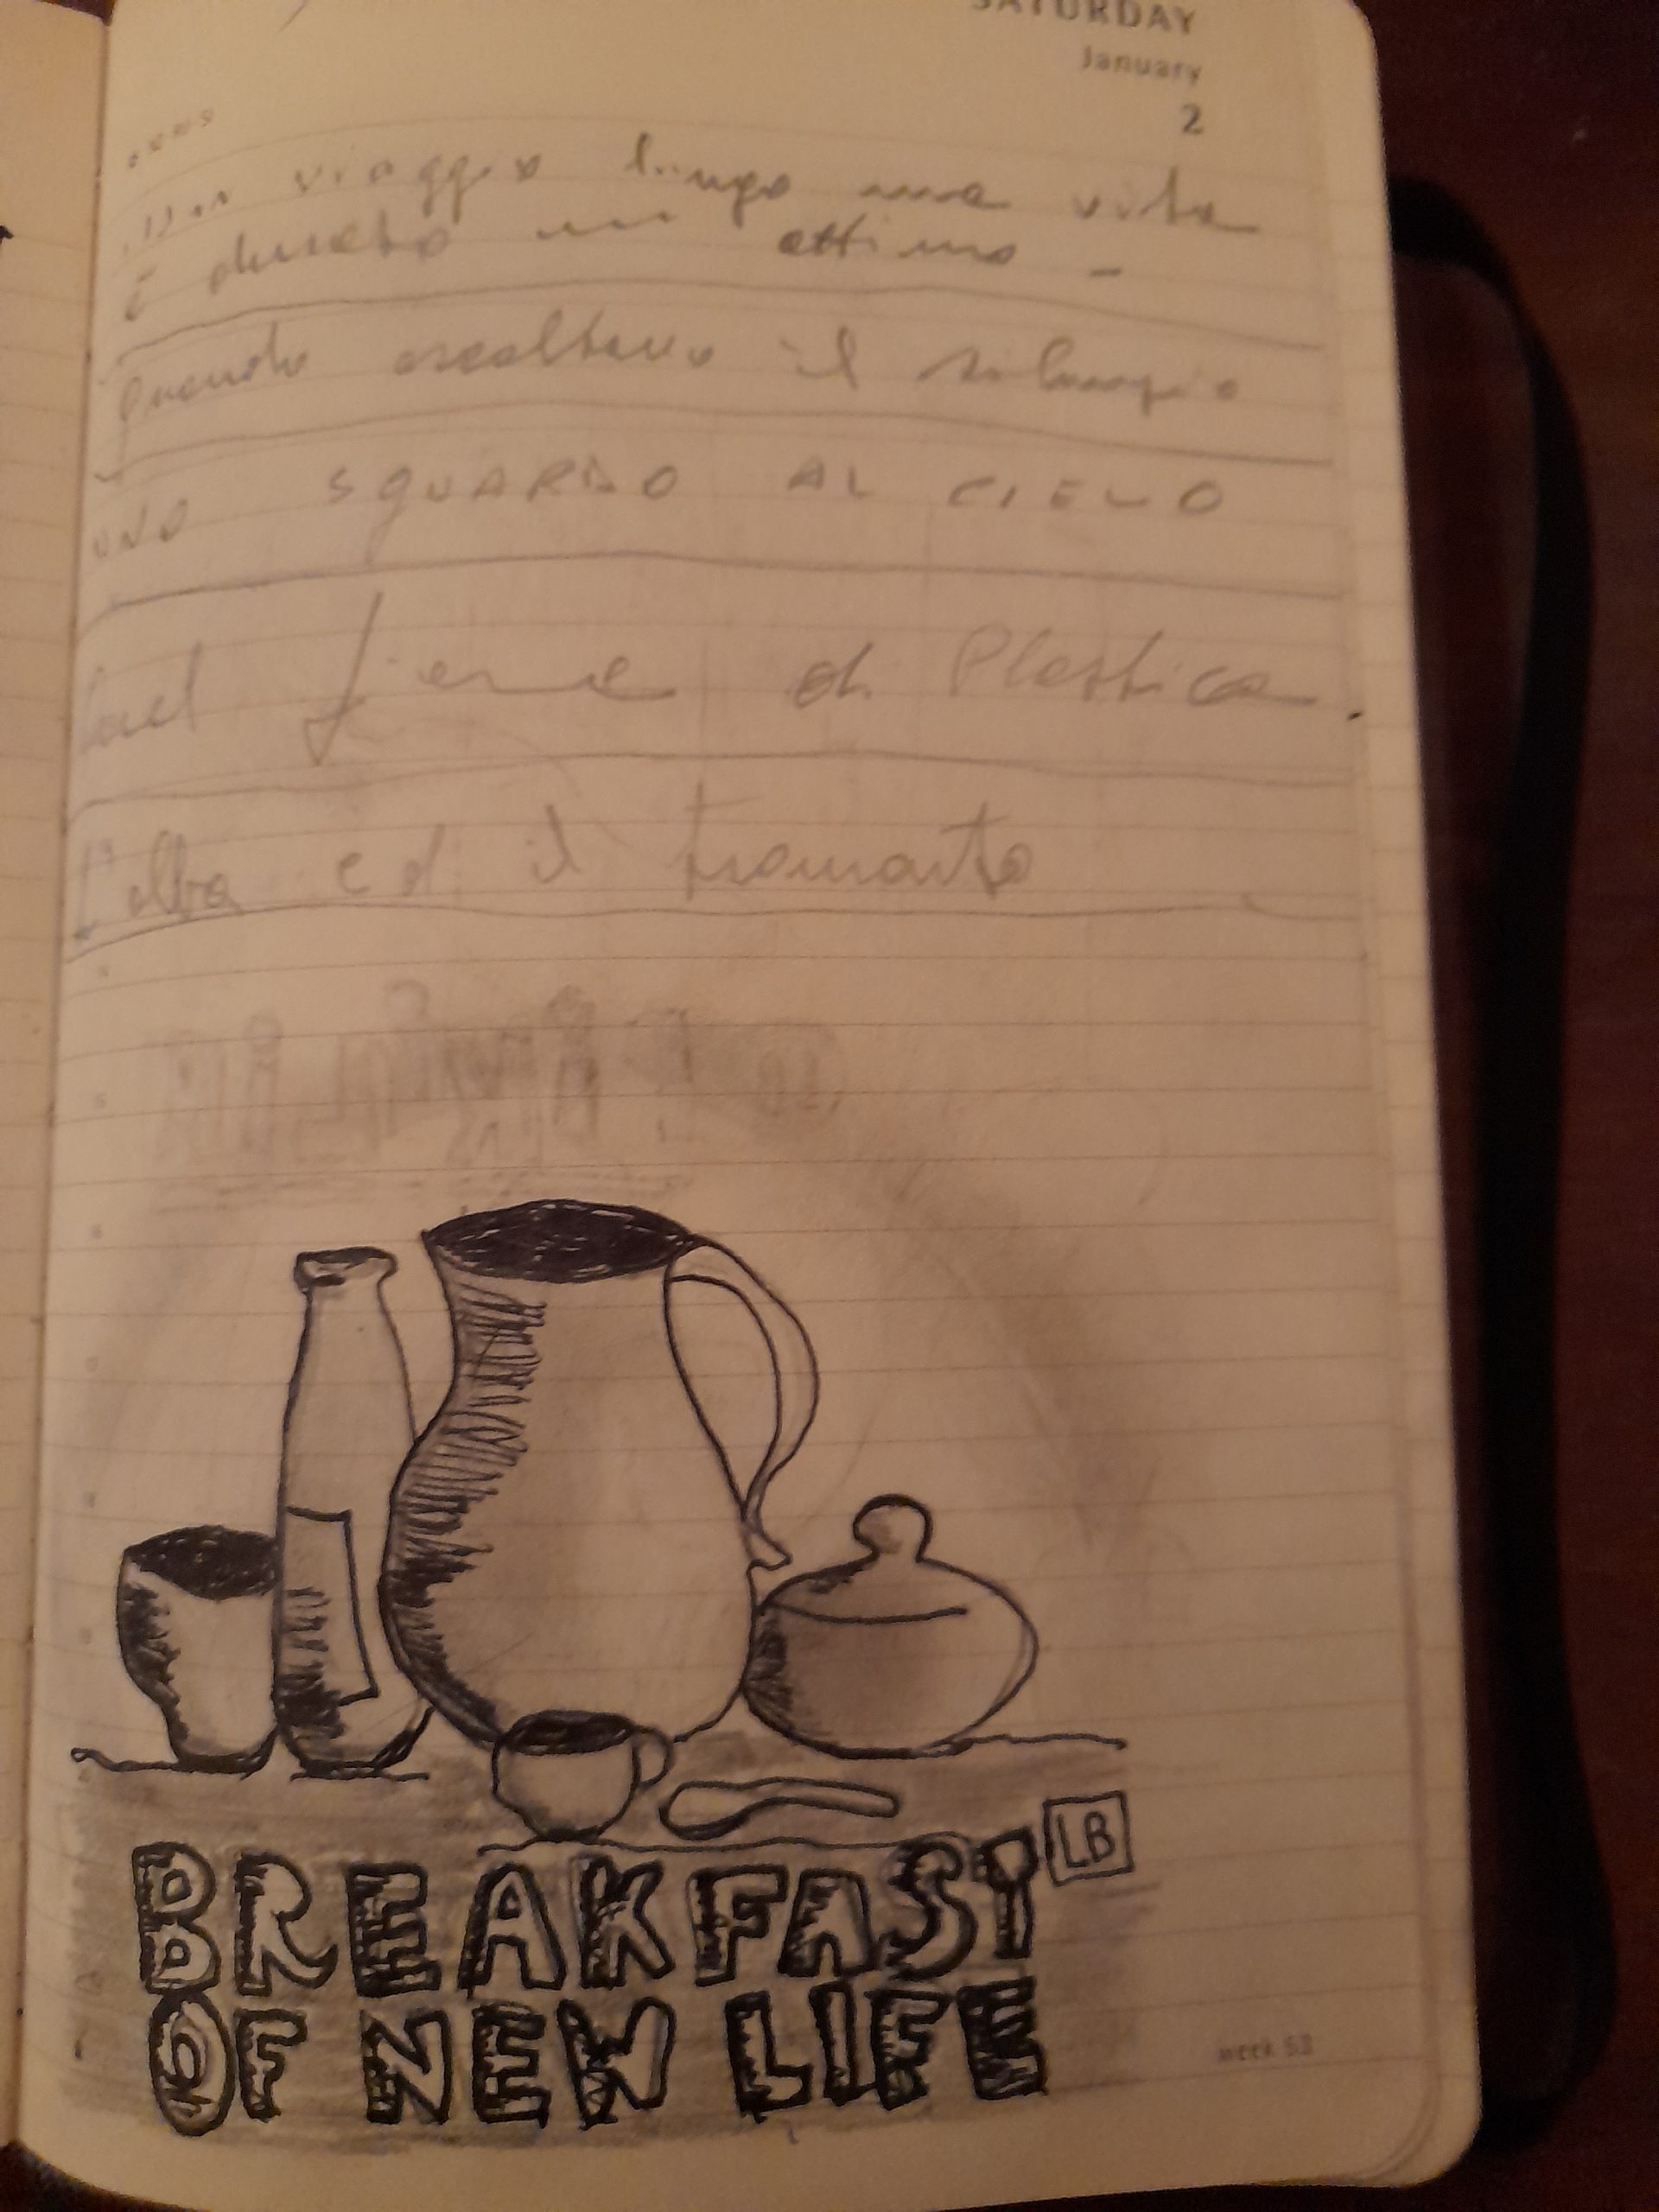 SATURDAY
January
2
Un viaggio lungo una vita
È durato un attimo -
Quando ascoltavo il silenzio
UNO SGUARDO AL CIELO
di Plastica
L'alba ed il tramonto
LB
BREAKFAST
OF NEW LIFE
week 53